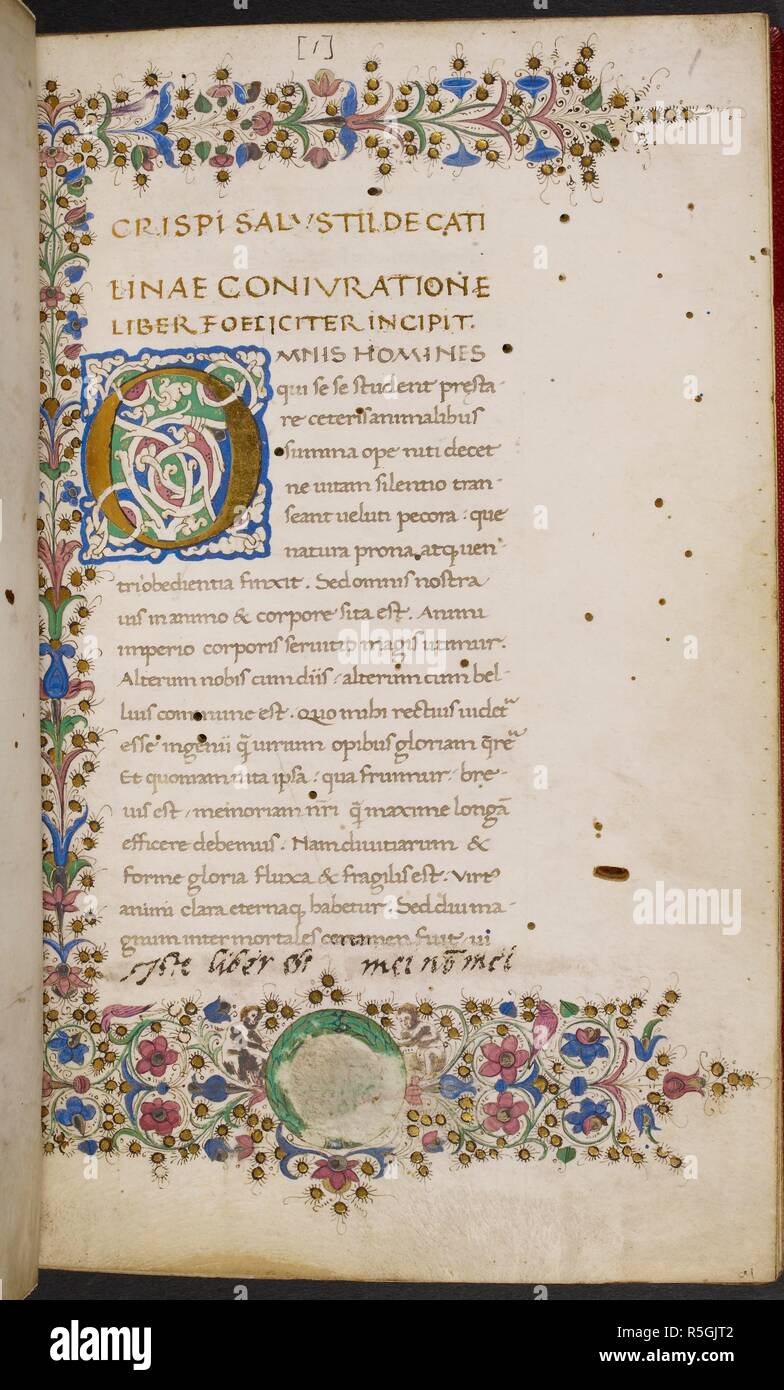 [1]
1
CRISPI SALVSTII DE CATI
LINAE CONIVRATIONE
LIBER FOELICITER INCIPIT.
OMNIS HOMINES
qui se se student presta-
re ceteris animalibus
summa ope niti decet
ne uitam silentio tran-
seant ueluti pecora: que
natura prona, atq; uen-
tri obedientia finxit. Sed omnis nostra
uis in animo & corpore sita est. Animi
imperio corporis seruitio magis utimur.
Alterum nobis cum diis, alterum cum bel-
luis commune est. Quo mihi rectius uidetᵃ
esse ingenii q̃ uirium opibus gloriam q̃reᵃ
Et quoniam uita ipsa: qua fruimur: bre-
uis est, memoriam nr̃i q̃ maxime longã
efficere debemus. Nam diuitiarum &
forme gloria fluxa & fragilis est. Virtꝰ
animi clara eternaq; habetur. Sed diu ma-
gnum inter mortales certamen fuit. ui
iste liber est mei mei
alamy
Image ID: R5GJT2
www.alamy.com